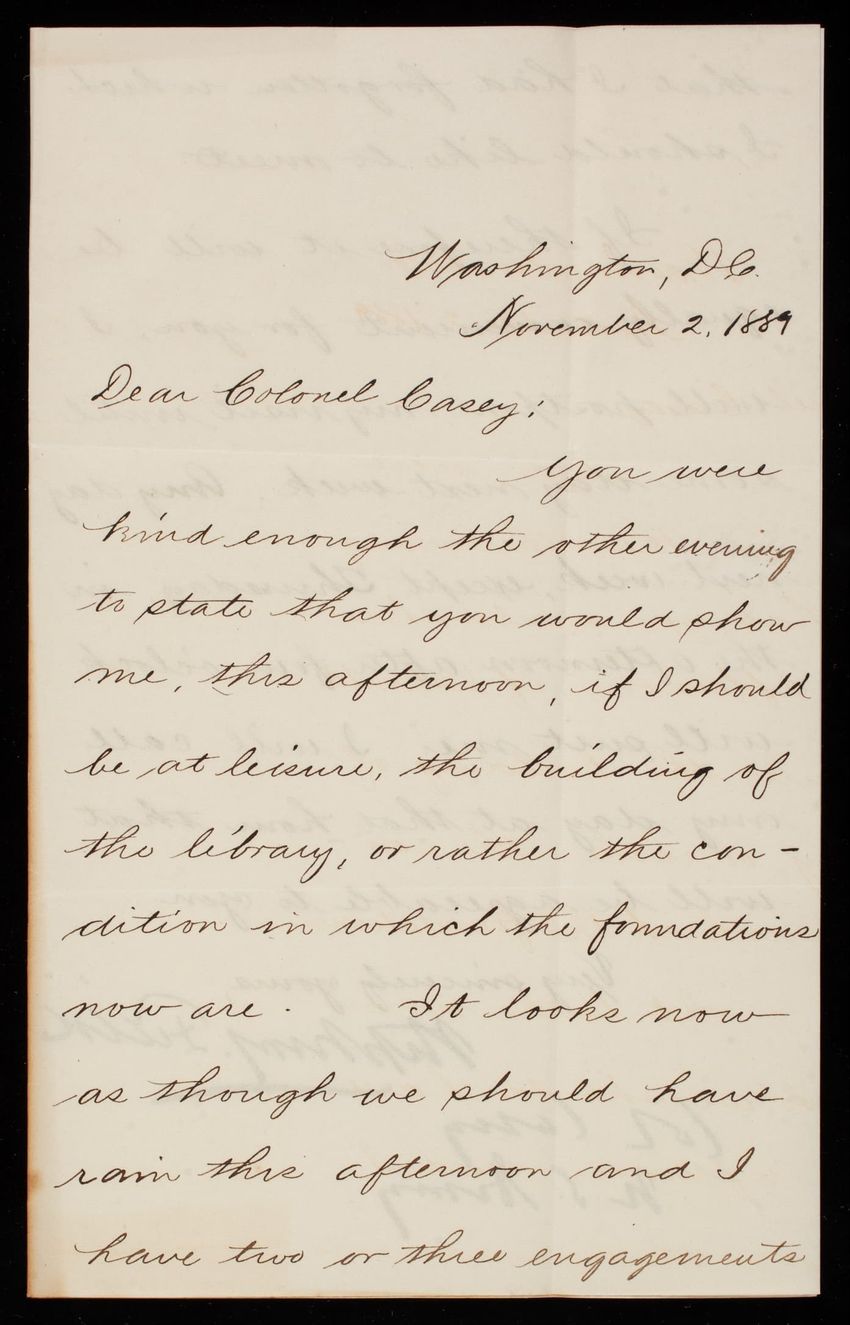 Washington, DC.
November 2, 1889
Dear Colonel Casey:
You were
kind enough the other evening
to state that you would show
me, this afternoon, if I should
be at leisure, the building of
the library, or rather the con-
dition in which the foundations
now are. It looks now
as though we should have
rain this afternoon and I
have two or three engagements